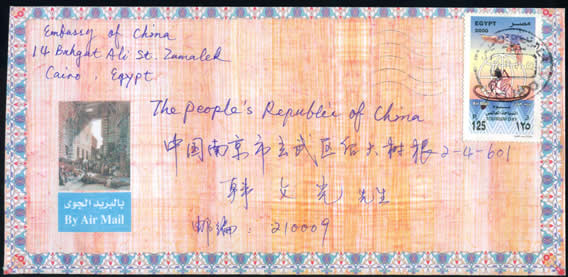 Embassy of China
14 Bahgat Ali St. Zamalek
Cairo, Egypt
EGYPT
مصر
2000
P.
125
١٢٥
The People's Republic of China
中国南京市玄武区佰大树根2-4-601
韩文光 先生
邮编: 210009
بالبريد الجوى
By Air Mail